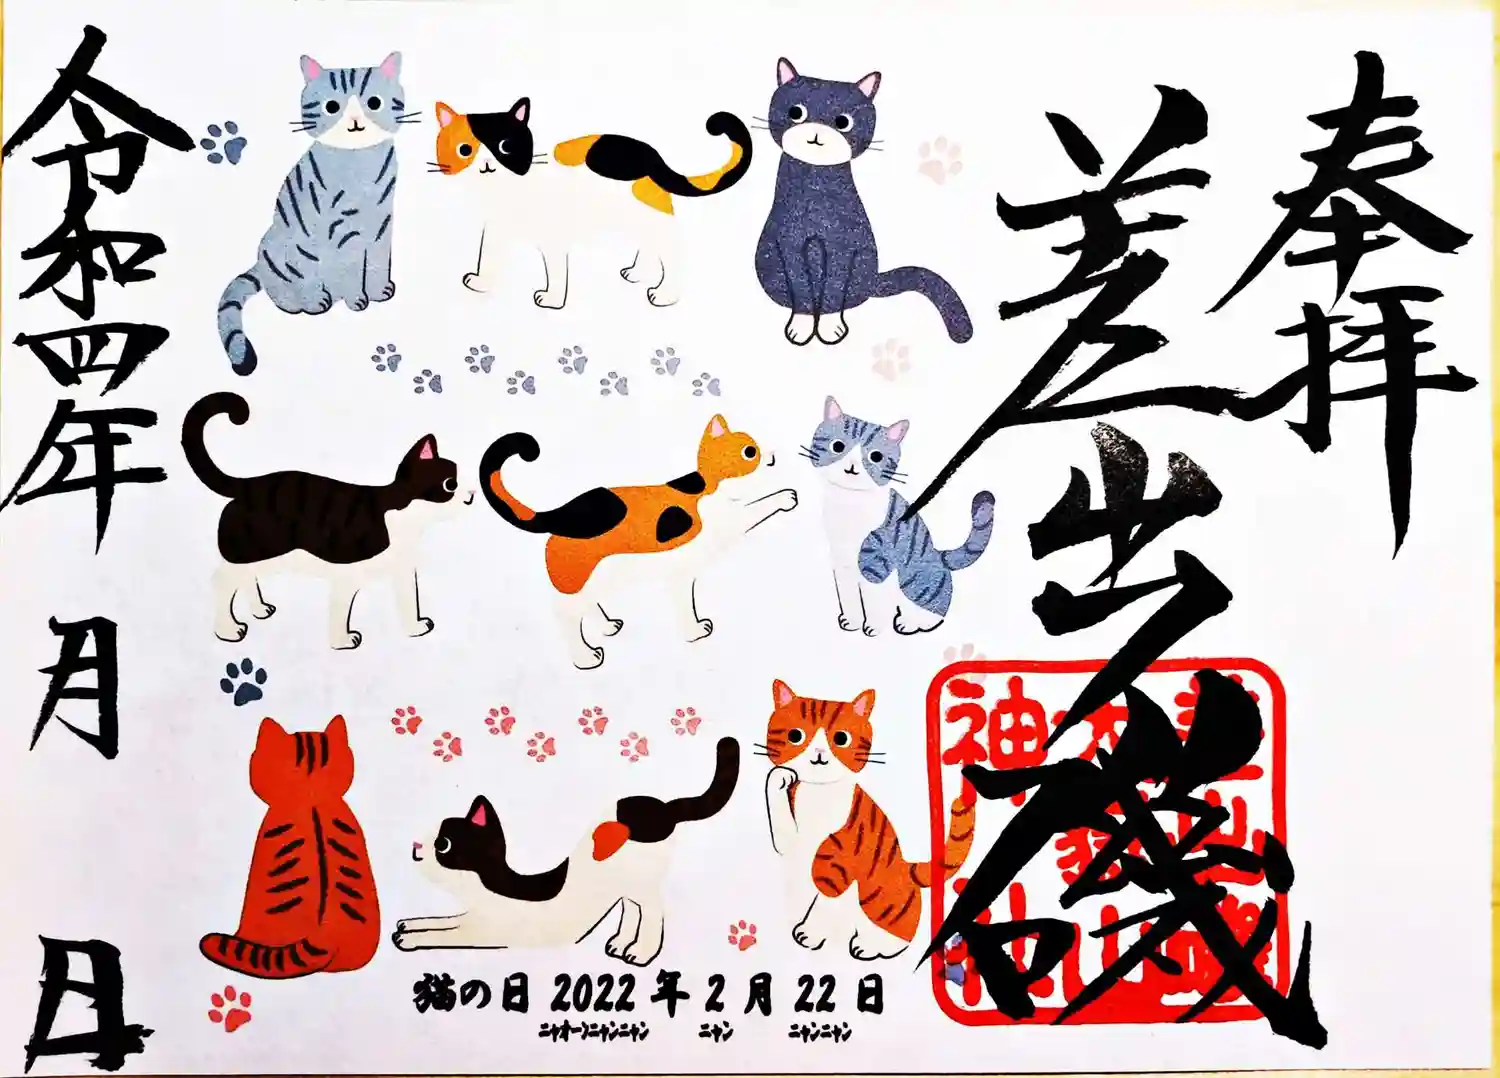 奉拝
差出磯
令和四年
月
日
猫の日 2022年2月22日
ニャオーンニャンニャン ニャン ニャンニャン